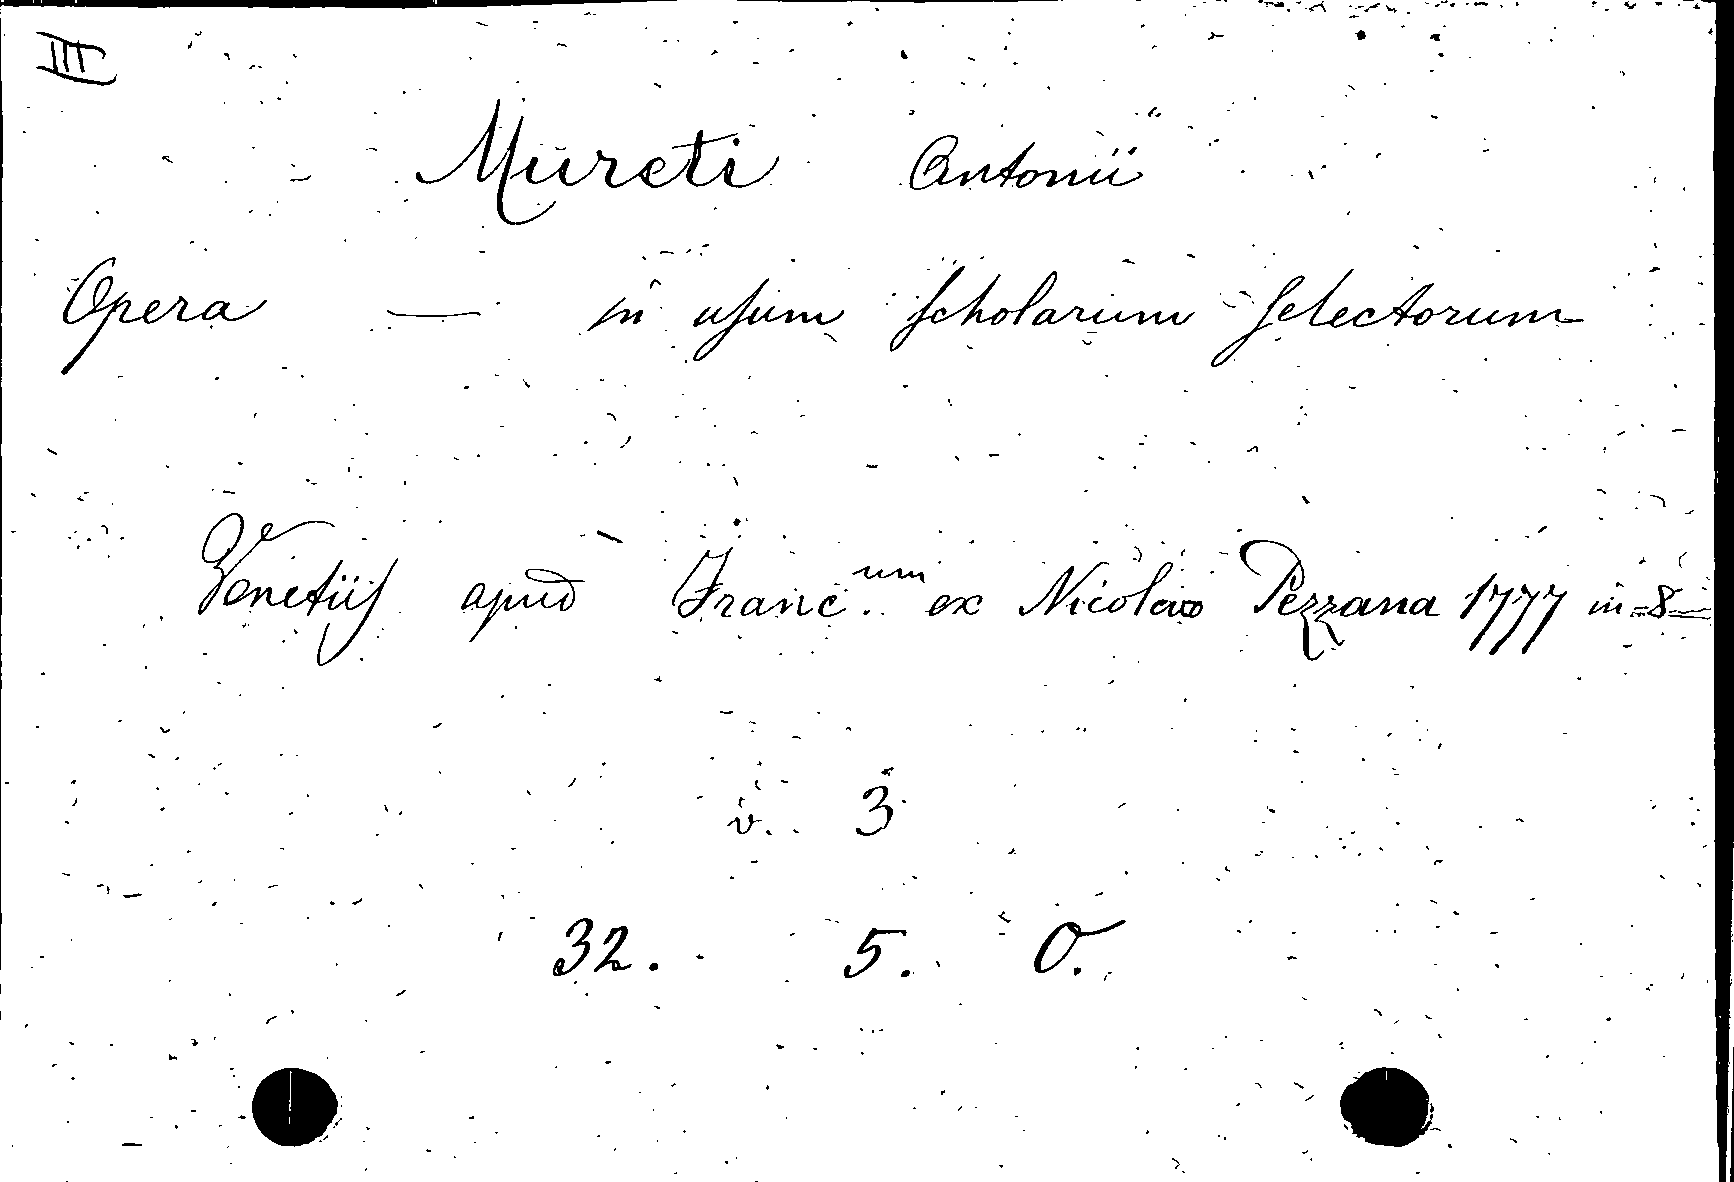 III
Mureti Antonii
Opera — in uſum ſcholarum ſelectorum
Venetiiſ apud Franc.um ex Nicolao Pezzana 1777 in-8
v. 3
32. 5. O.